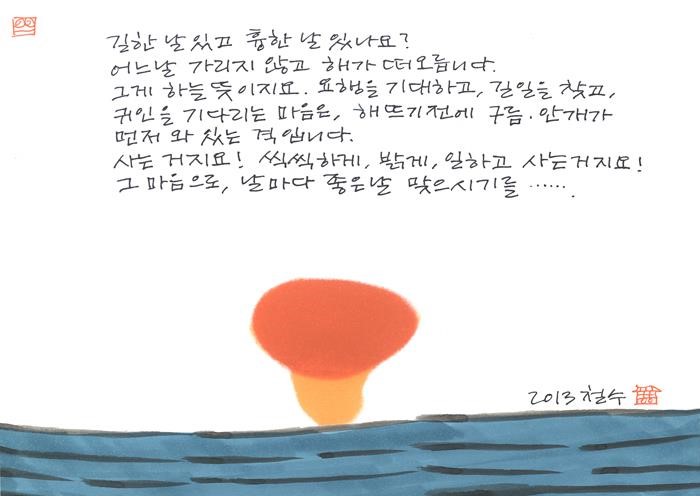 길한 날 있고 흉한 날 있나요?
어느날 가리지 않고 해가 떠오릅니다.
그게 하늘 뜻이지요. 요행을 기대하고, 길일을 찾고,
귀인을 기다리는 마음은, 해뜨기전에 구름·안개가
먼저 와 있는 격입니다.
사는 거지요! 씩씩하게, 밝게, 일하고 사는거지요!
그 마음으로, 날마다 좋은날 맞으시기를 …….
2013 철수